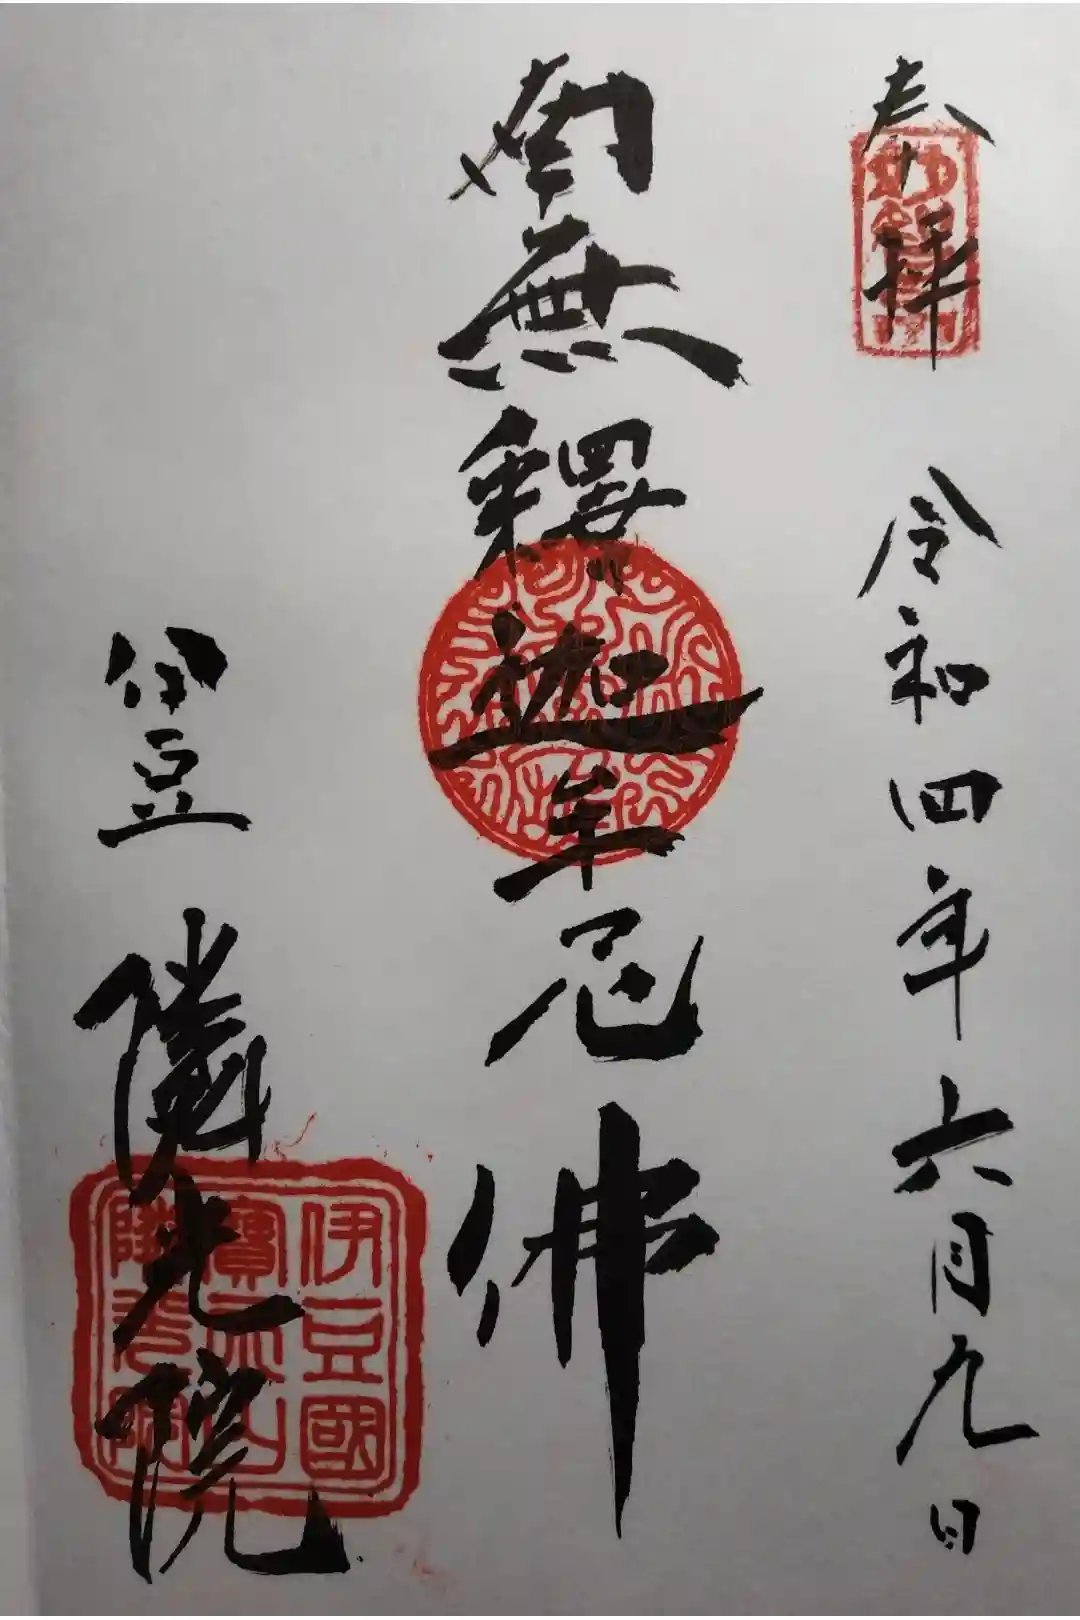 奉拝
令和四年六月九日
南無釋迦牟尼佛
伊豆
隣光院
伊豆國